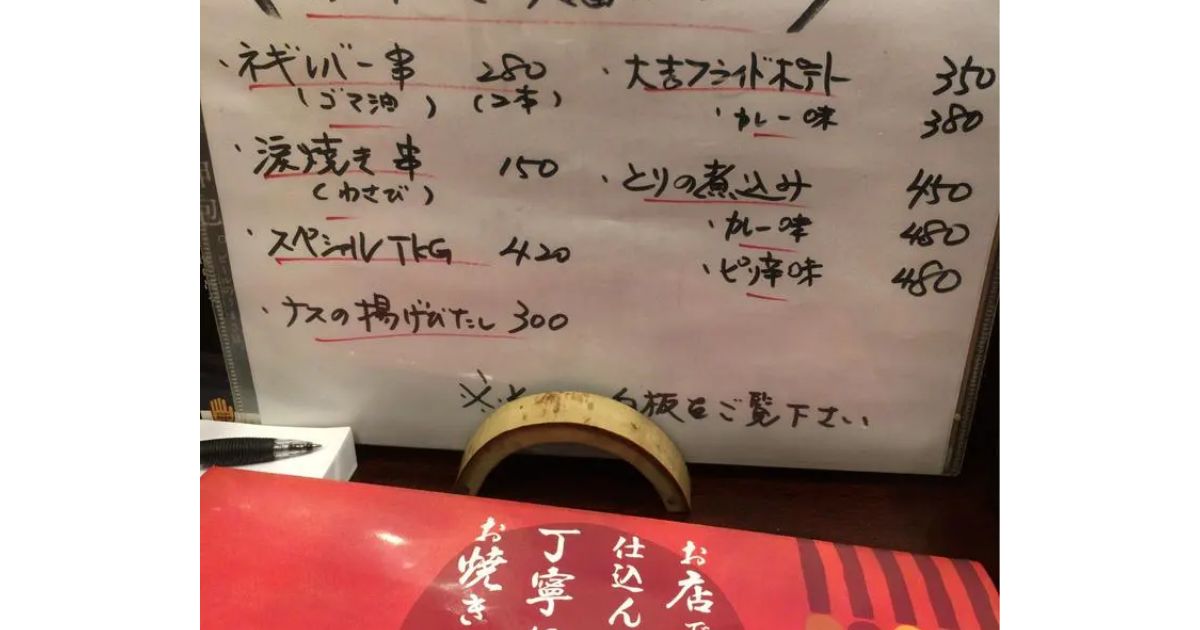 ・ネギレバー串 280
(ゴマ油) (2本)
・涙焼き串 150
(わさび)
・スペシャルTKG 420
・ナスの揚げびたし 300
・大吉フライドポテト 350
・カレー味 380
・とりの煮込み 450
・カレー味 480
・ピリ辛味 480
※ 白板もご覧下さい
お店で
仕込ん
丁寧に
お焼き